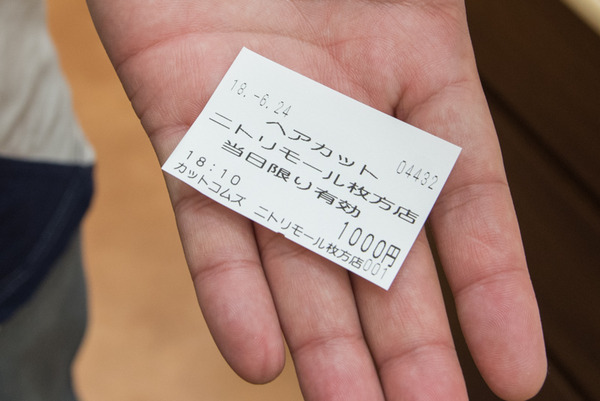 18.-6.24
ヘアカット 04432
ニトリモール枚方店
当日限り有効
18:10 1000円
カットコムズ ニトリモール枚方店001